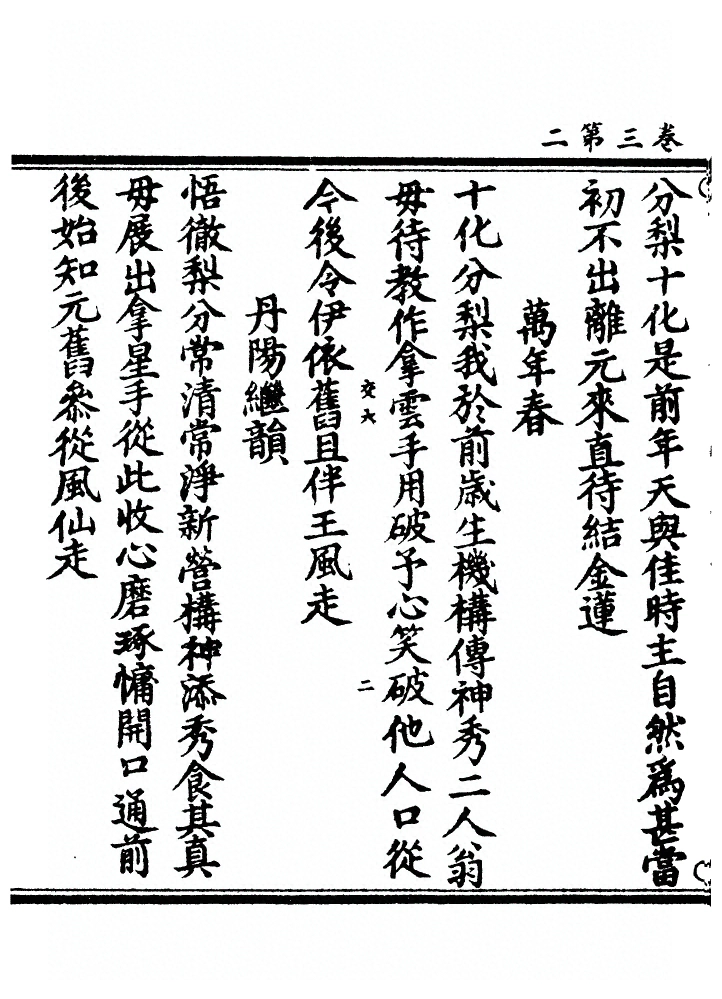 二第三卷
分梨十化是前年天與佳時主自然爲甚當
初不出離元來直待結金蓮
萬年春
十化分梨我於前歲生機構傳神秀二人翁
毋待教作拿雲手用破予心笑破他人口從
今後令伊依舊且伴王風走
交六
二
丹陽繼韻
悟徹梨分常清常淨新營構神添秀食其真
毋展出拿星手從此收心磨琢慵開口通前
後始知元舊叅從風仙走